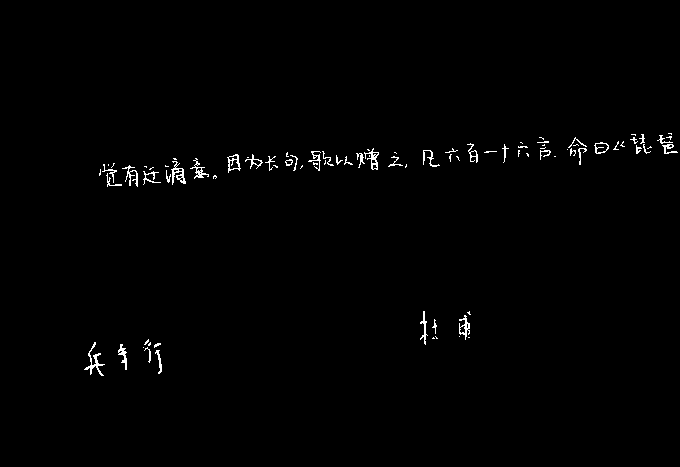 觉有迁滴意。因为长句,歌以赠之,凡六百一十六言.命曰《琵琶
兵车行 杜甫